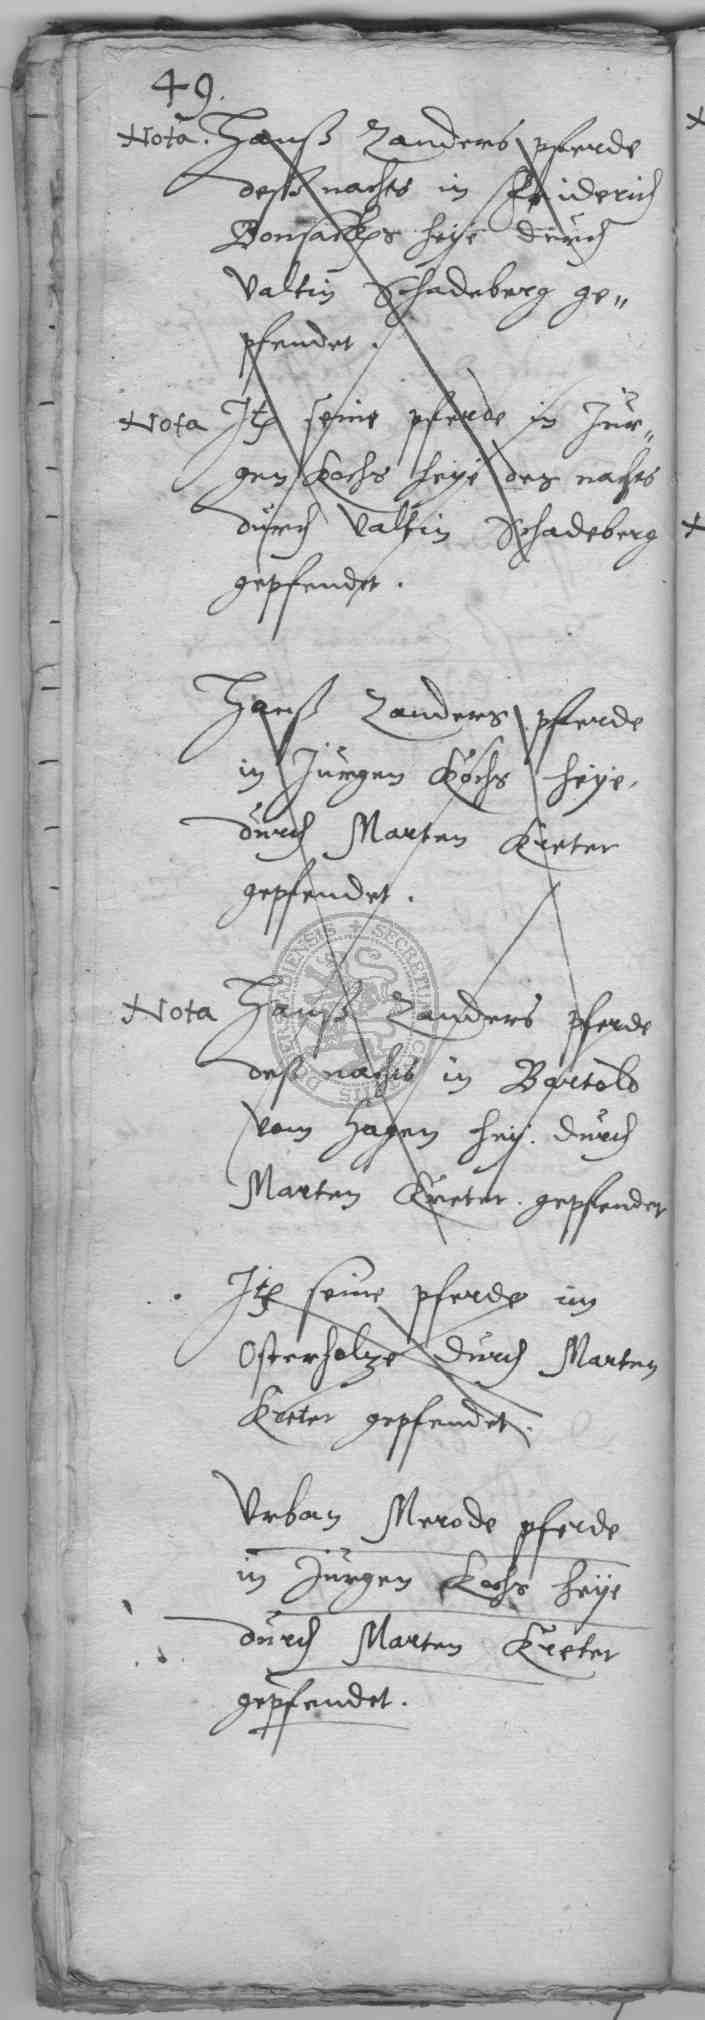 49.
Nota. Hanß Zanders pferde
deß nachts in Friderich
Bonsacks heye durch
Valtin Schadeberg ge„
pfendet.
Nota Itē seine pferde in Jür„
gen Kochs heye des nachts
durch Valtin Schadeberg
gepfendet.
Hanß Zanders pferde
in Jürgen Kochs heye,
durch Marten Kreter
gepfendet.
Nota Hanß Zanders pferde
deß nachts in Bartold
vom Hagen hey. durch
Marten Kreter. gepfendet
Itē seine pferde im
Osterholtze durch Marten
Kreter gepfendet.
Urban Merode pferde
in Jürgen Kochs heye
durch Marten Kreter
gepfendet.
SECRETUM